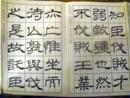 知臣伐賊才
弱敵彊也然
不伐賊王業
亦亡惟坐而
待亡孰與伐
之是故託臣